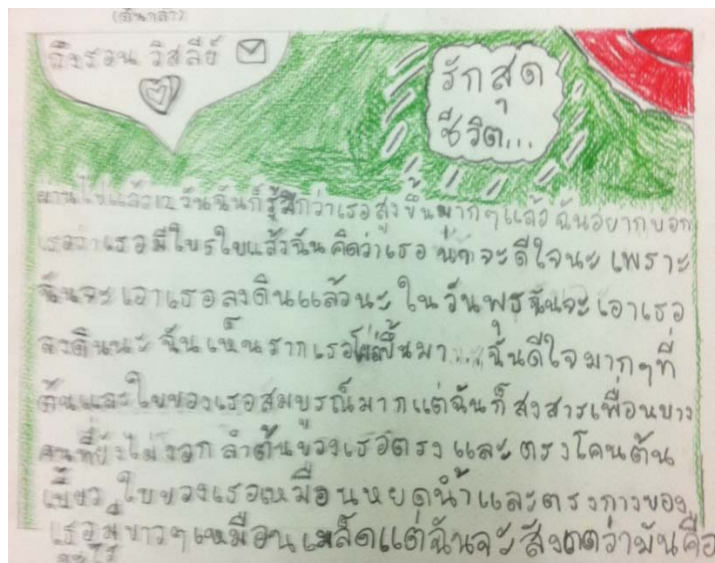 (ต้นกล้า)
ถึงรวน วิสลีย์
รักสุด
ชีวิต...
ผ่านไปแล้ว วันฉันก็รู้สึกว่าเธอสูงขึ้นมากๆแล้ว ฉันอยากบอก
เธอว่าเธอมีใบ ใบแล้วฉันคิดว่าเธอ น่าจะดีใจนะ เพราะ
ฉันจะเอาเธอลงดินแล้วนะ ในวันพุธฉันจะเอาเธอ
ลงดินนะ ฉันเห็นรากเธอโผล่ขึ้นมา... ฉันดีใจมากๆที่
ต้นและใบของเธอสมบูรณ์มากแต่ฉันก็สงสารเพื่อนบาง
คนที่ยังไม่งอก ลำต้นของเธอตรง และ ตรงโคนต้น
ใบของเธอเหมือนหยดน้ำและตรงกางของ
เธอมีขาวๆเหมือนเมล็ดแต่ฉันจะสังเกตว่ามันคือ